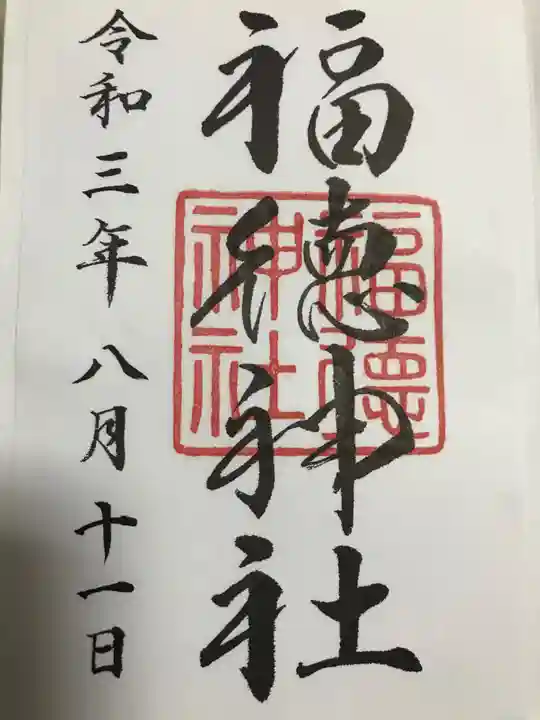 福徳神社
福德
神社
令和三年八月十一日